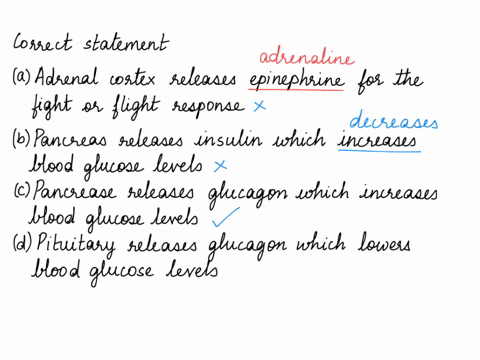 Correct statement
adrenaline
(a) Adrenal cortex releases epinephrine for the
fight or flight response ×
decreases
(b) Pancreas releases insulin which increases
blood glucose levels ×
(c) Pancrease releases glucagon which increases
blood glucose levels ✓
(d) Pituitary releases glucagon which lowers
blood glucose levels